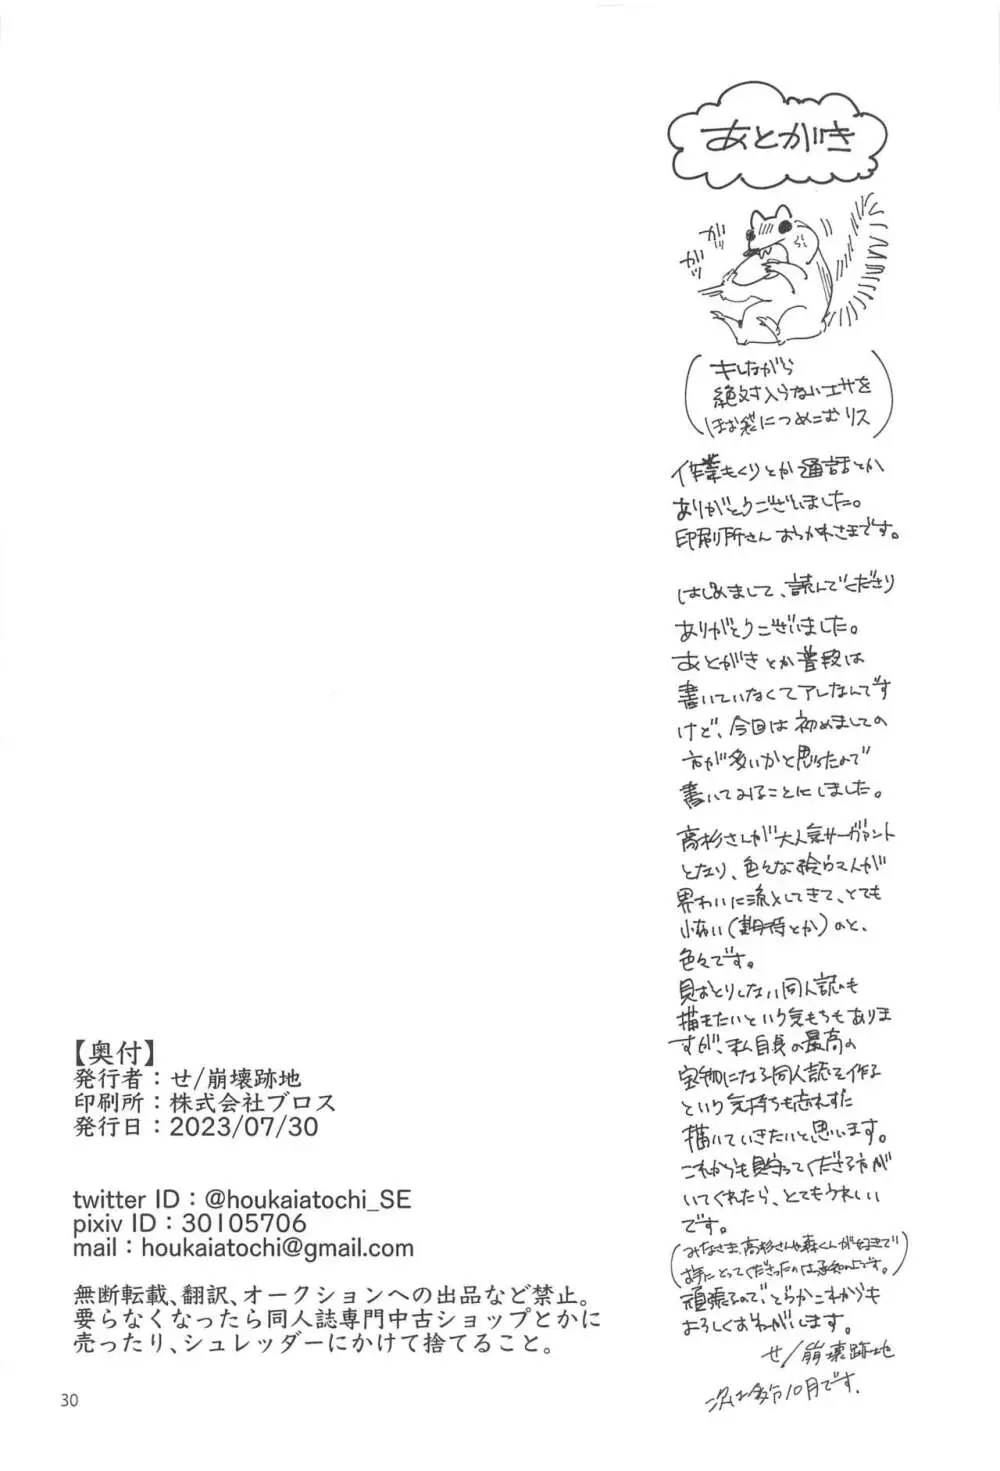 あとがき
ガッ
ガッ
(キレながら
絶対入らないエサを
ほお袋につめこむリス)
作業もくりとか通話とか
ありがとうございました。
印刷所さんおつかれさまです。
はじめまして、読んでくださり
ありがとうございました。
あとがきとか普段は
書いていなくてアレなんです
けど、今回は初めましての
方が多いかと思ったので
書いてみることにしました。
高杉さんが大人気サーヴァント
となり、色々な絵うまい人が
界わいに流入してきて、とても
小さい(期待とか)のと、
色々です。
見おとりしない同人誌も
描きたいという気もちもありま
すが、私自身の最高の
宝物になる同人誌を作る
という気持ちも忘れずに
描いていきたいと思います。
これからも見守ってくださる方が
いてくれたら、とてもうれしい
です。
(みなさま、高杉さんや森くんが好きで
お手にとってくださったのは承知の上です。)
頑張るので、どうかこれからも
よろしくおねがいします。
せ/崩壊跡地
次は 10月です。
【奥付】
発行者:せ/崩壊跡地
印刷所:株式会社ブロス
発行日:2023/07/30
twitter ID:@houkaiatochi_SE
pixiv ID:30105706
mail:houkaiatochi@gmail.com
無断転載、翻訳、オークションへの出品など禁止。
要らなくなったら同人誌専門中古ショップとかに
売ったり、シュレッダーにかけて捨てること。
30